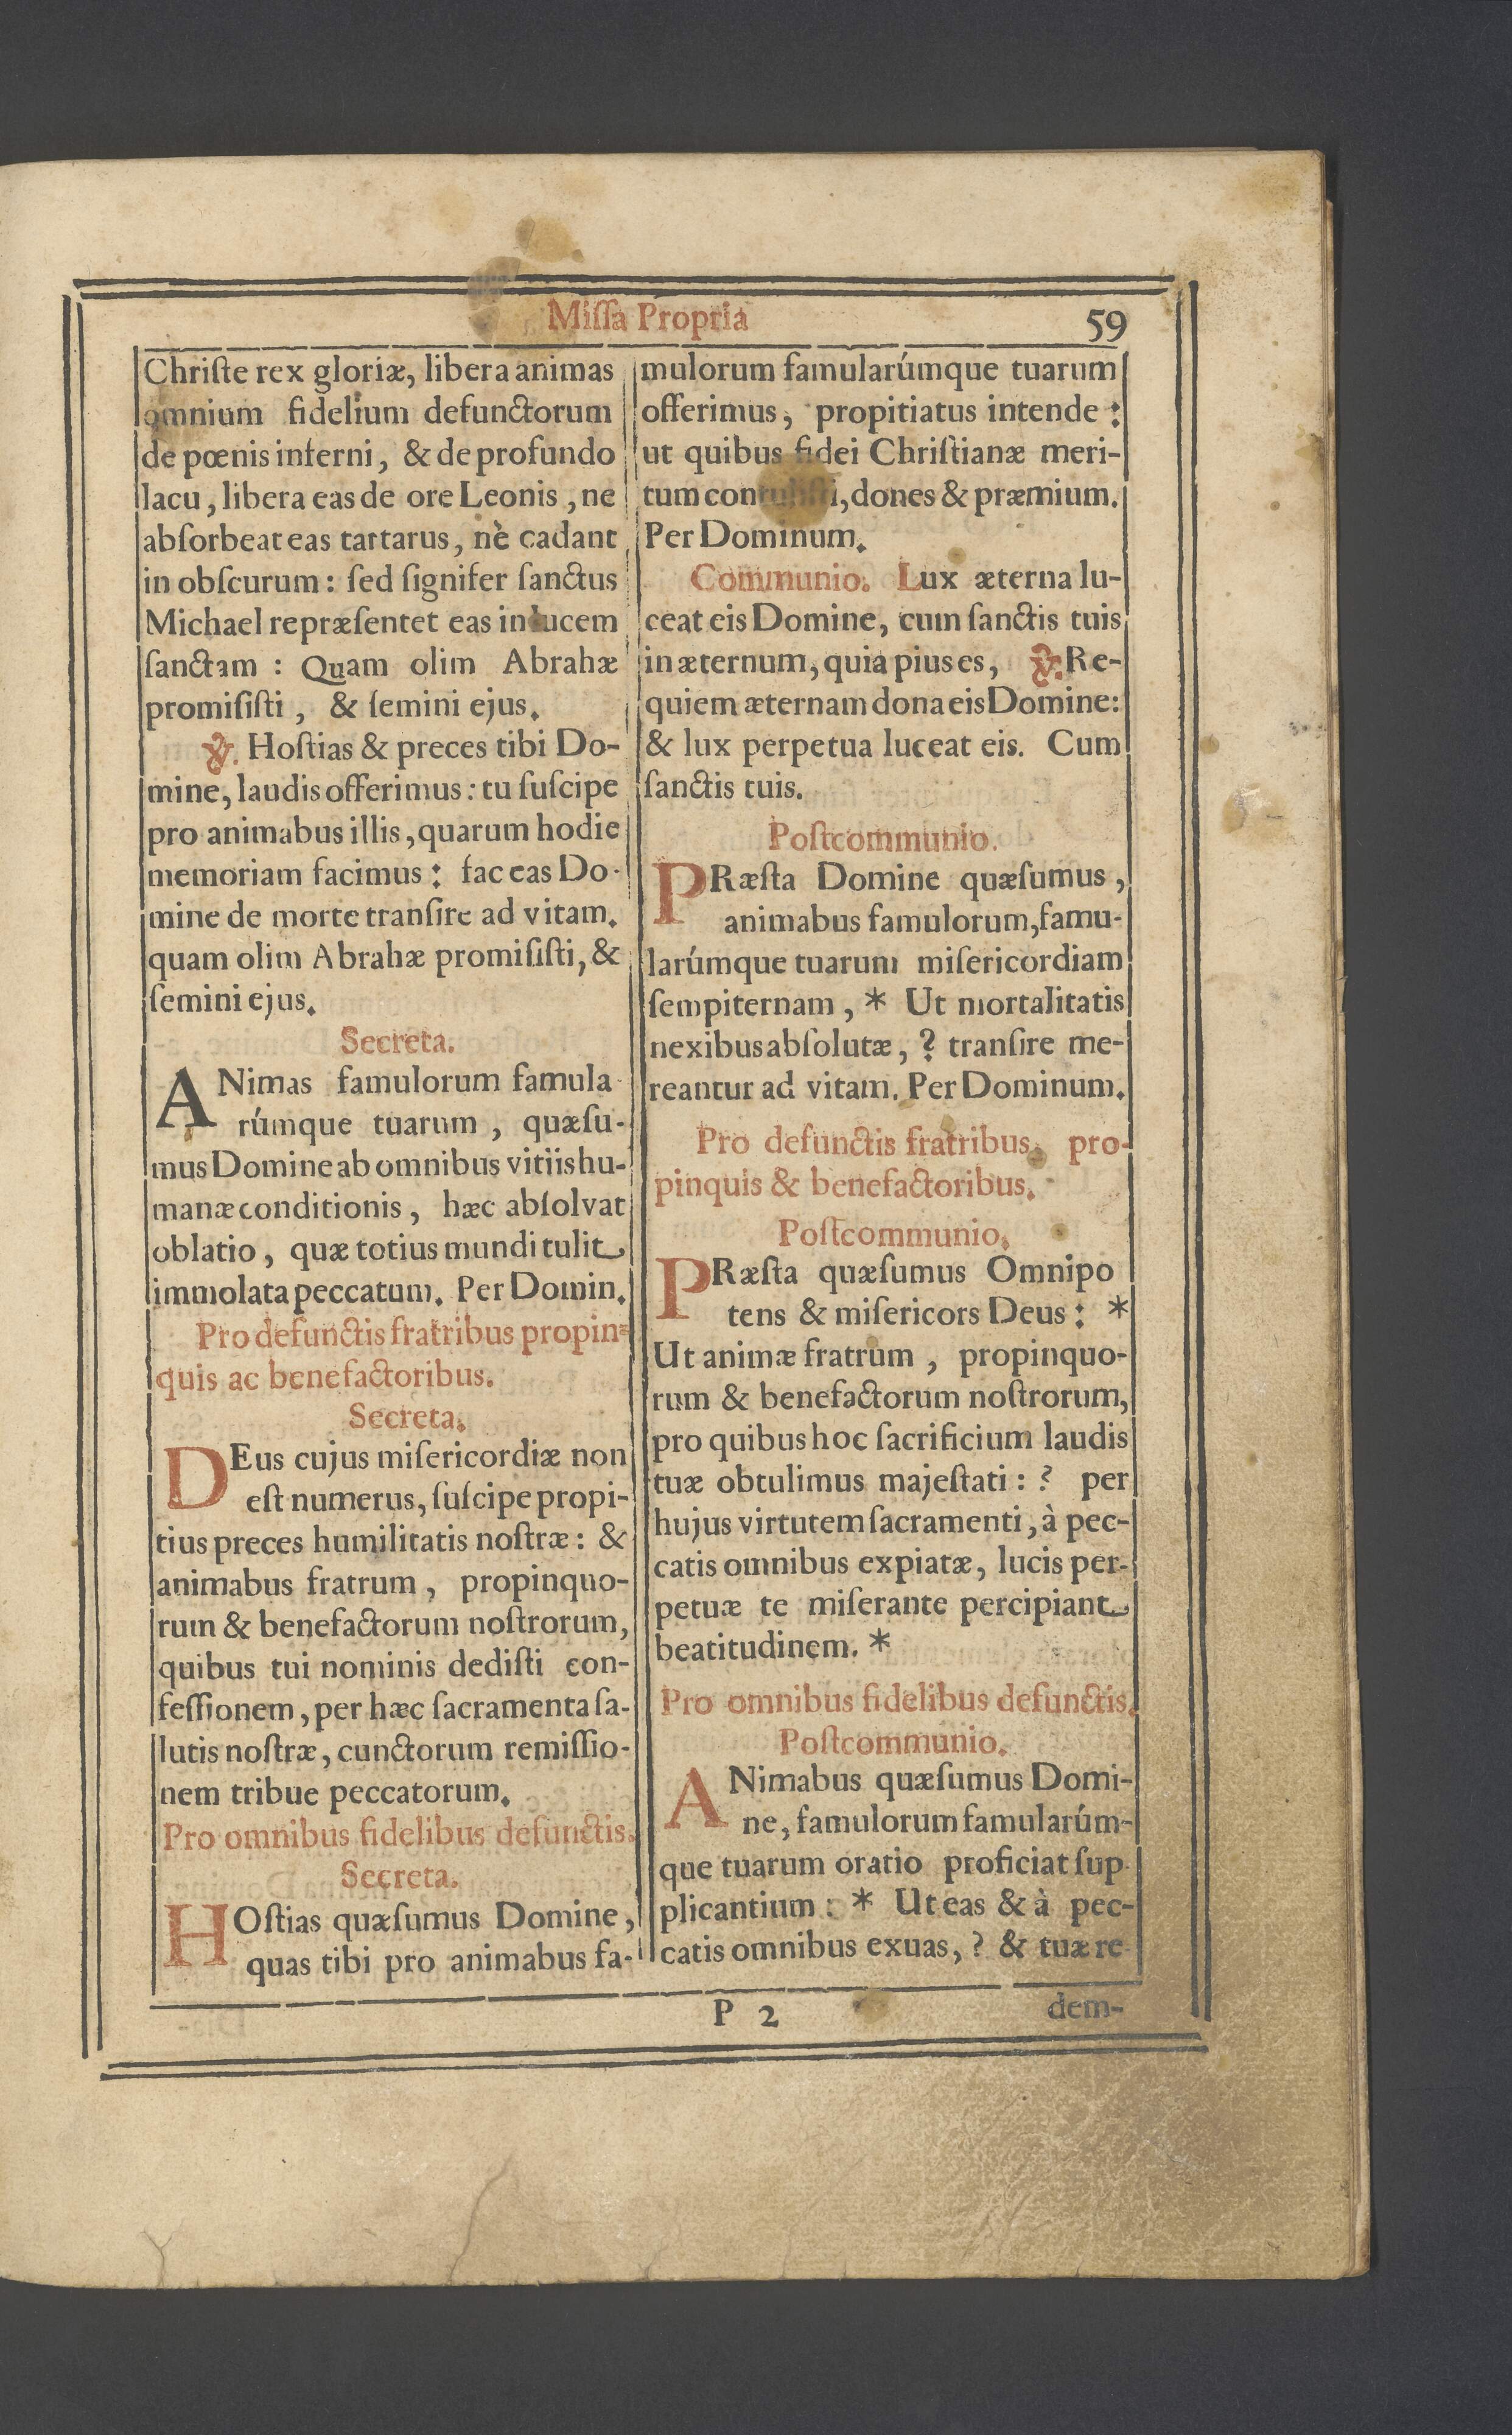 Miſſa Propria 59
Chriſte rex gloriæ, libera animas
omnium fidelium defunctorum
de pœnis inferni, & de profundo
lacu, libera eas de ore Leonis, ne
abſorbeat eas tartarus, nè cadant
in obſcurum: ſed ſignifer ſanctus
Michael repræſentet eas in lucem
ſanctam: Quam olim Abrahæ
promiſiſti, & ſemini ejus.
℣. Hoſtias & preces tibi Do-
mine, laudis offerimus: tu ſuſcipe
pro animabus illis, quarum hodie
memoriam facimus: fac eas Do-
mine de morte tranſire ad vitam.
quam olim Abrahæ promiſiſti, &
ſemini ejus.
Secreta.
ANimas famulorum famula-
rúmque tuarum, quæſu-
mus Domine ab omnibus vitiis hu-
manæ conditionis, hæc abſolvat
oblatio, quæ totius mundi tulit
immolata peccatum. Per Domin.
Pro defunctis fratribus propin-
quis ac benefactoribus.
Secreta.
DEus cujus miſericordiæ non
eſt numerus, ſuſcipe propi-
tius preces humilitatis noſtræ: &
animabus fratrum, propinquo-
rum & benefactorum noſtrorum,
quibus tui nominis dediſti con-
feſſionem, per hæc ſacramenta ſa-
lutis noſtræ, cunctorum remiſſio-
nem tribue peccatorum.
Pro omnibus fidelibus defunctis.
Secreta.
HOſtias quæſumus Domine,
quas tibi pro animabus fa-
mulorum famularúmque tuarum
offerimus, propitiatus intende:
ut quibus fidei Chriſtianæ meri-
tum contuliſti, dones & præmium.
Per Dominum.
Communio. Lux æterna lu-
ceat eis Domine, cum ſanctis tuis
in æternum, quia pius es, ℣. Re-
quiem æternam dona eis Domine:
& lux perpetua luceat eis. Cum
ſanctis tuis.
Poſtcommunio.
PRæſta Domine quæſumus,
animabus famulorum, famu-
larúmque tuarum miſericordiam
ſempiternam, * Ut mortalitatis
nexibus abſolutæ, ? tranſire me-
reantur ad vitam. Per Dominum.
Pro defunctis fratribus, pro-
pinquis & benefactoribus.
Poſtcommunio.
PRæſta quæſumus Omnipo
tens & miſericors Deus: *
Ut animæ fratrum, propinquo-
rum & benefactorum noſtrorum,
pro quibus hoc ſacrificium laudis
tuæ obtulimus majeſtati: ? per
hujus virtutem ſacramenti, à pec-
catis omnibus expiatæ, lucis per-
petuæ te miſerante percipiant
beatitudinem. *
Pro omnibus fidelibus defunctis.
Poſtcommunio.
ANimabus quæſumus Domi-
ne, famulorum famularúm-
que tuarum oratio proficiat ſup-
plicantium: * Ut eas & à pec-
catis omnibus exuas, ? & tuæ re-
P 2 dem-